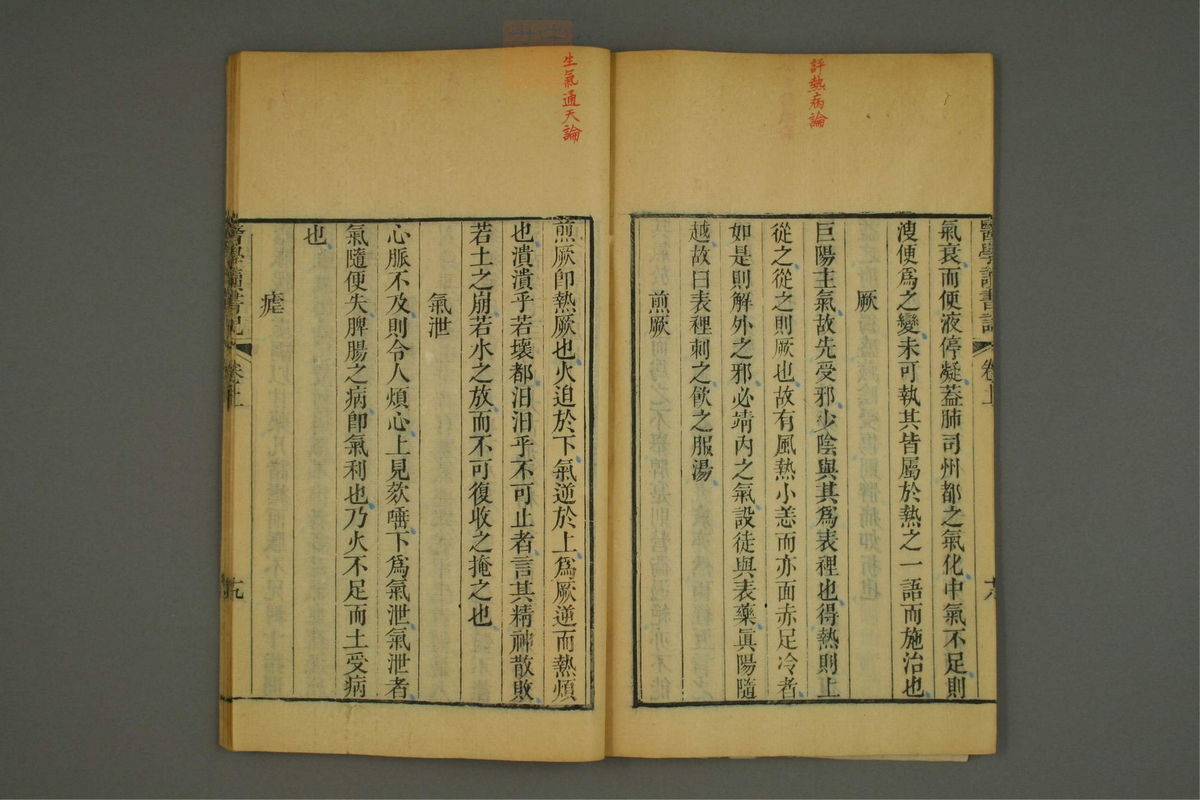 評熱病論
醫學讀書記
卷上
氣衰而便液停凝蓋肺司州都之氣化中氣不足則
溲便爲之變未可執其皆屬於熱之一語而施治也
厥
巨陽主氣故先受邪少陰與其爲表裡也得熱則上
從之從之則厥也故有風熱小恙而亦面赤足冷者
如是則解外之邪必靖內之氣設徒與表藥眞陽隨
越故曰表裡刺之飮之服湯
煎厥
生氣通天論
煎厥卽熱厥也火迫於下氣逆於上爲厥逆而熱煩
也潰潰乎若壞都汨汨乎不可止者言其精神散敗
若土之崩若水之放而不可復收之掩之也
氣泄
心脈不及則令人煩心上見欬唾下爲氣泄氣泄者
氣隨便失脾腸之病卽氣利也乃火不足而土受病
也
瘧
醫學讀書記
卷上
十九